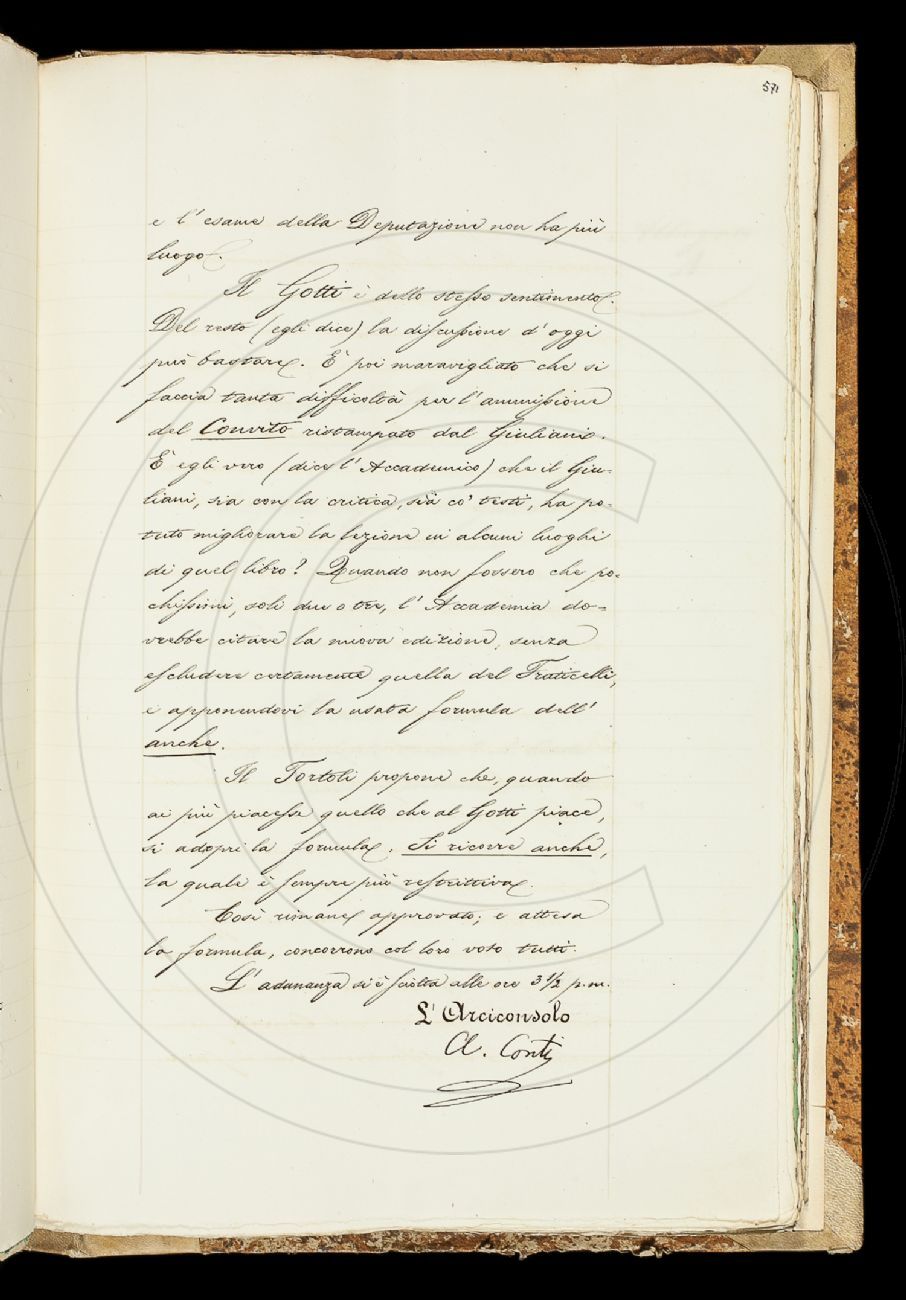 571
e l'esame della Deputazione non ha più
luogo.
Il Gotti è dello stesso sentimento.
Del resto (egli dice) la discussione d'oggi
può bastare. È poi maravigliato che si
faccia tanta difficoltà per l'ammissione
del Convito ristampato dal Giuliani.
È egli vero (dice l'Accademico) che il Giu-
liani, sia con la critica, sia co' testi, ha po-
tuto migliorare la lezione in alcuni luoghi
di quel libro? Quando non fossero che po-
chissimi, soli due o tre, l'Accademia do-
vrebbe citare la nuova edizione, senza
escludere certamente quella del Fraticelli,
e apponendovi la usata formula dell'
anche.
Il Tortoli propone che, quando
ai più piacesse quello che al Gotti piace,
si adopri la formula. Si ricorre anche,
la quale è sempre più restrittiva.
Così rimane approvato; e attesa
la formula, concorrono col loro voto tutti.
L'adunanza si è sciolta alle ore 3 1/2 p.m.
L'Arciconsolo
A. Conti